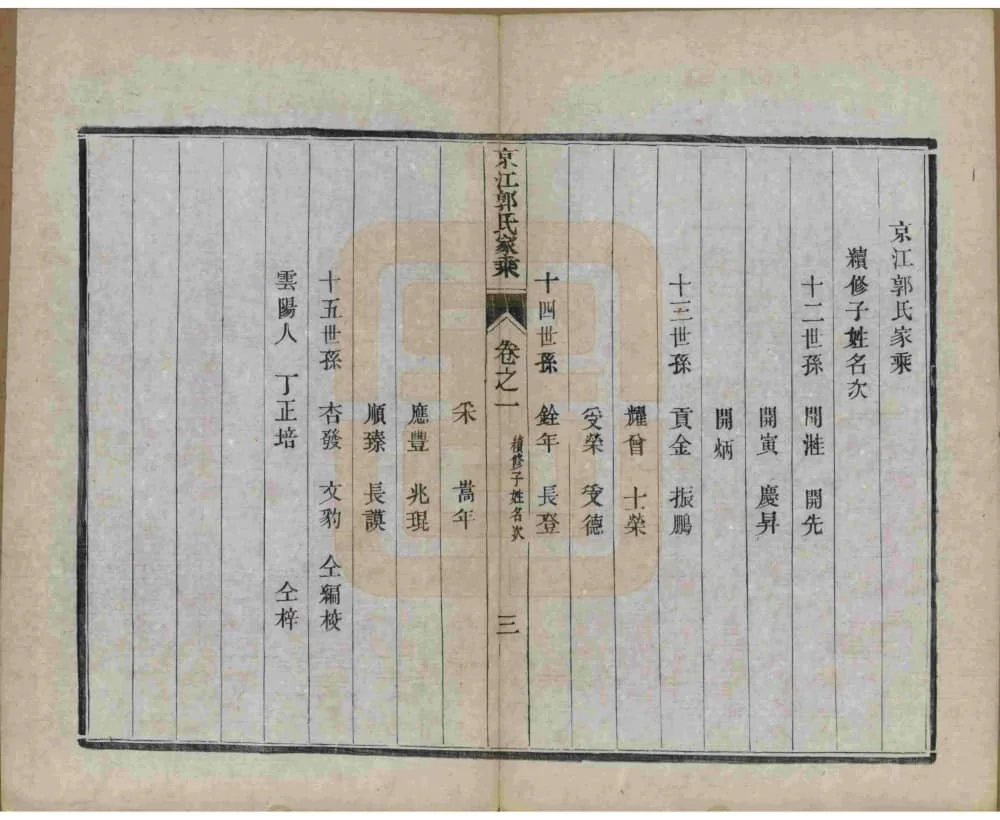 京江郭氏家乘
續修子姓名次
十二世孫 開溎 開先
開寅 慶昇
開炳
十三世孫 貢金 振鵬
耀曾 士榮
受榮 受德
十四世孫 銓年 長登
京江郭氏家乘 卷之一 續修子姓名次 三
采 嵩年
應豐 兆琨
順臻 長謨
十五世孫 杏發 文豹 仝編校
雲陽人 丁正培 仝梓